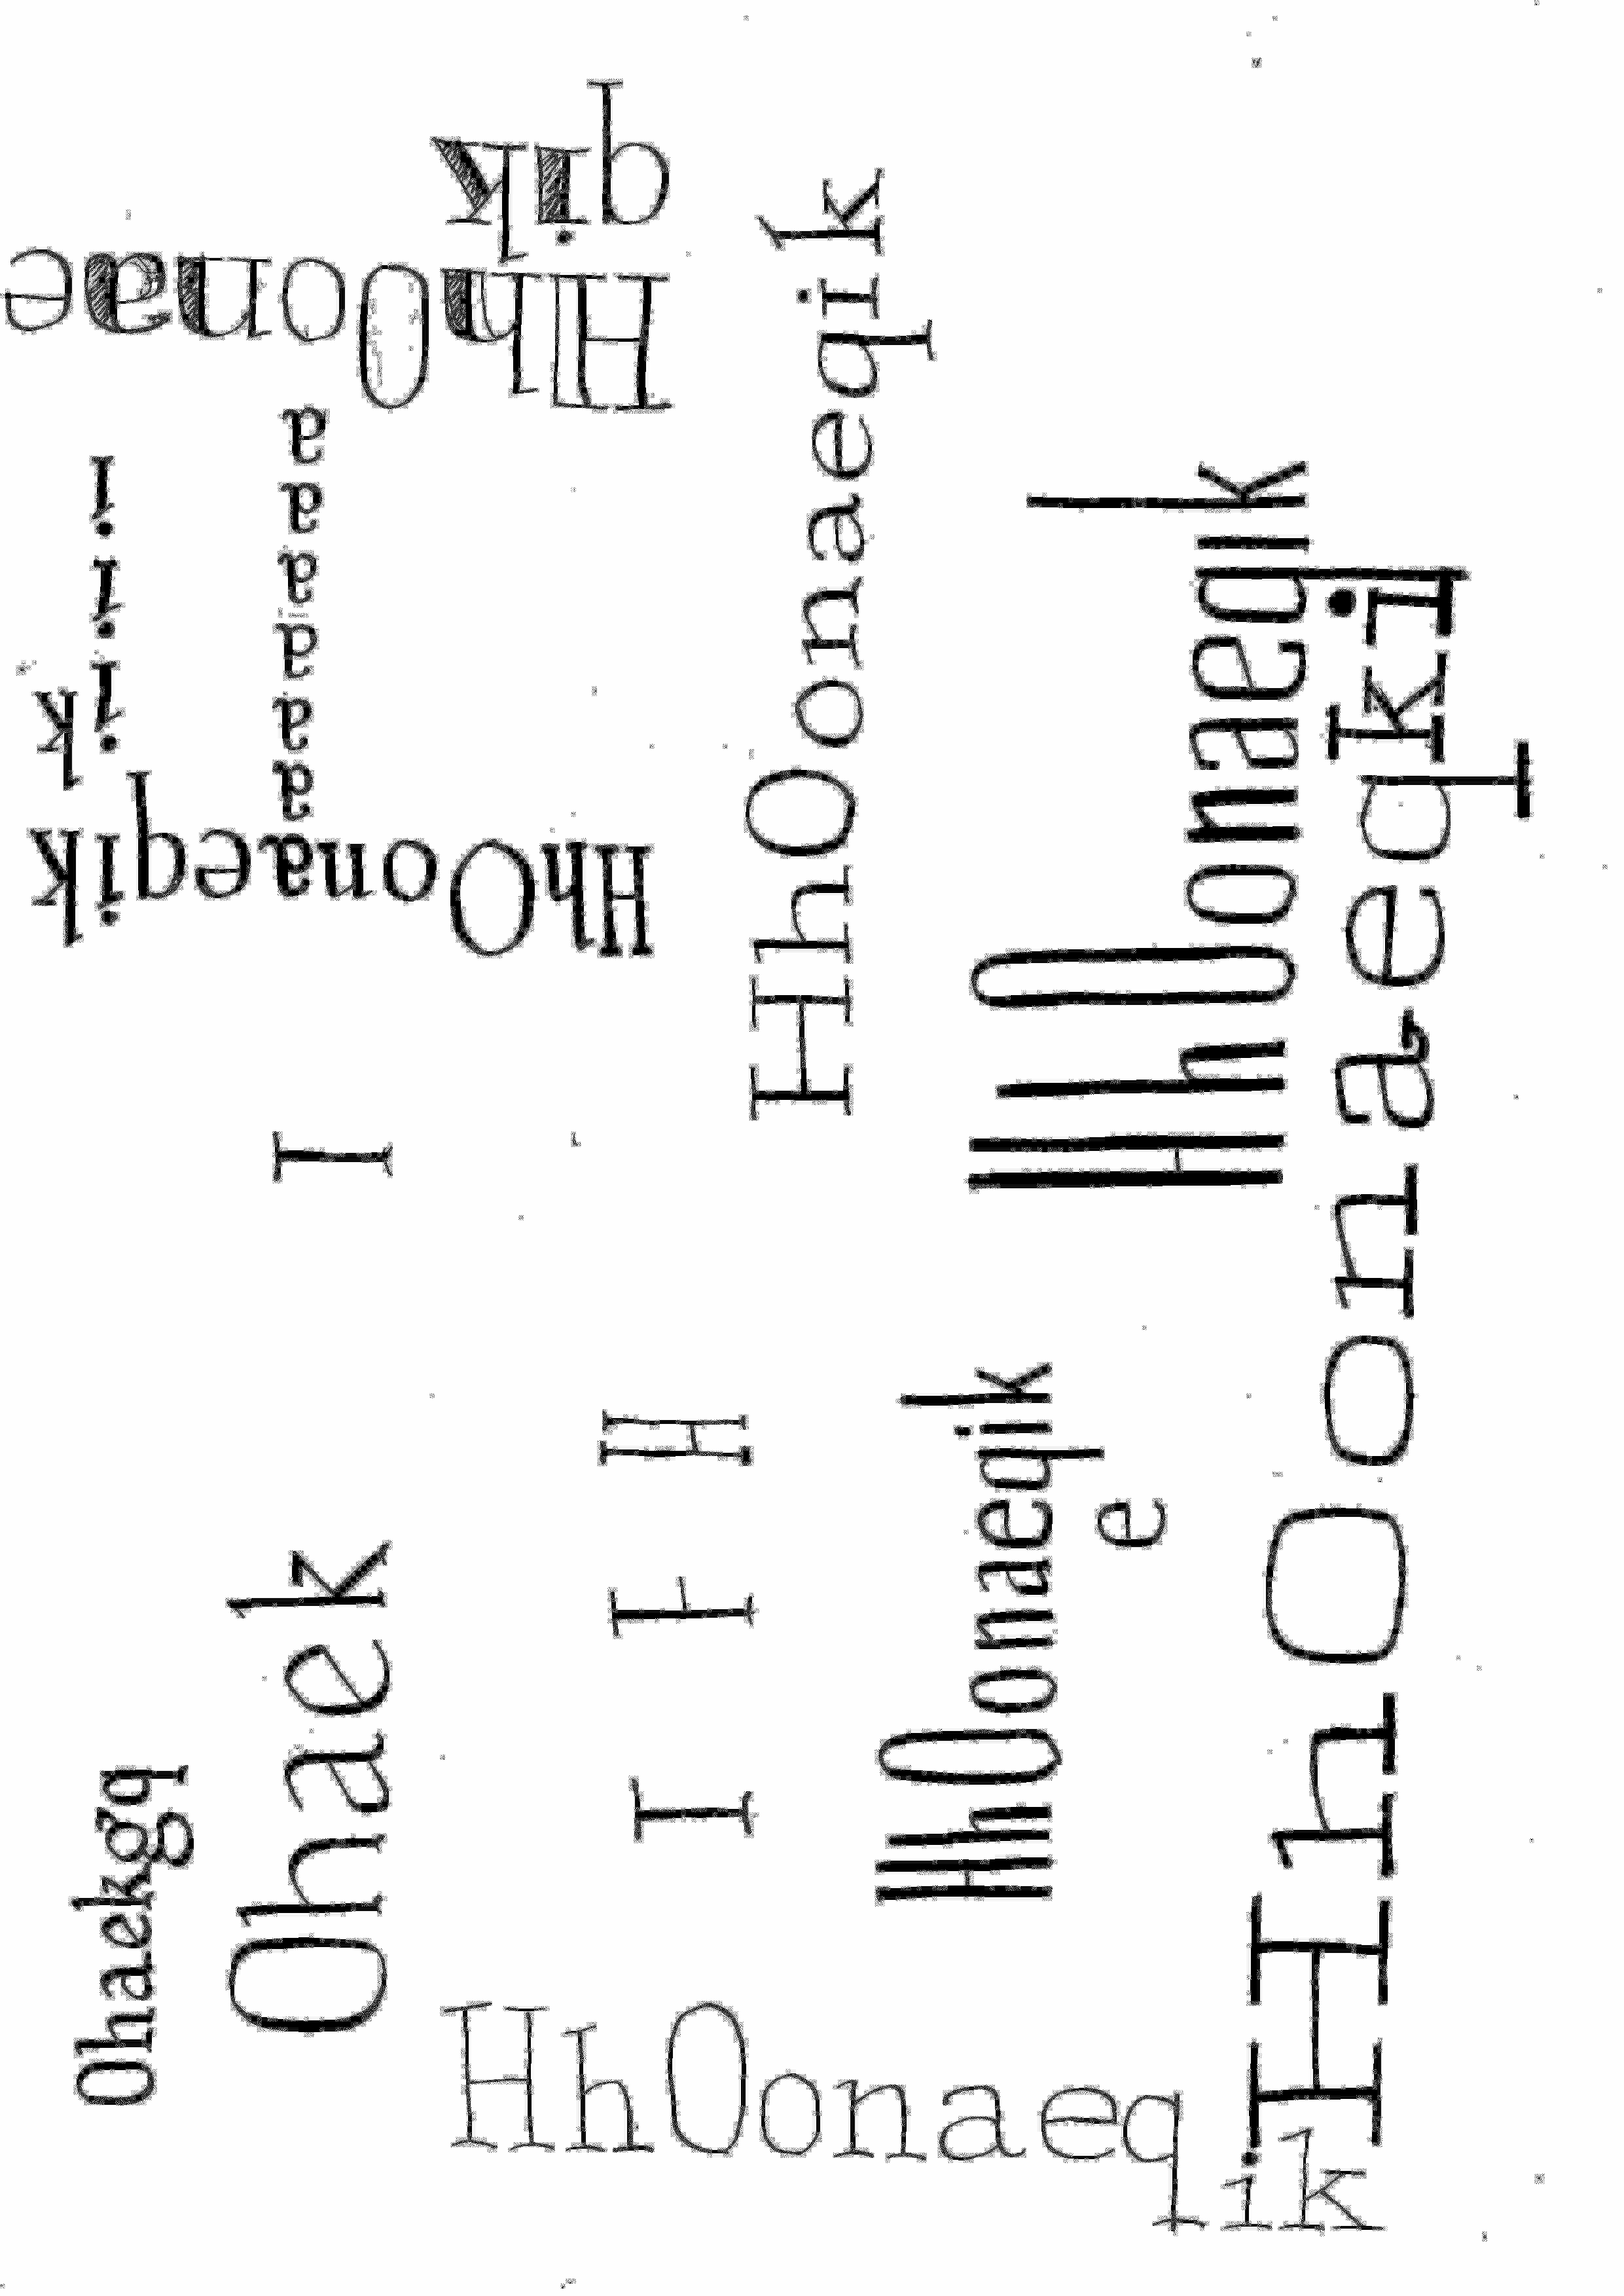 Ohaekgq
Ohaek
I
HhOonaeqik
ik
i
i
a
a
a
a
a
a
HhOonae
qik
HhOonaeqik
I F H
HhOonaeqik
HhOonaeqik
e
HhOonaeqik
HhOonaeqki